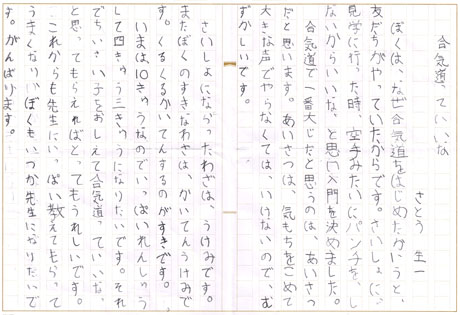 合気道っていいな
さとう 生一
ぼくは、なぜ合気道をはじめたかいうと、
友だちがやっていたからです。さいしょに、
見学に行った時、空手みたいにパンチを、し
ないからいいな、と思い入門を決めました。
合気道で一番大じだと思うのは、あいさつ
だと思います。あいさつは、気もちをこめて
大きな声でやらなくては、いけないので、む
ずかしいです。
さいしょにならったわざは、うけみです。
またぼくのすきなわざは、かいてんうけみで
す。くるくるかいてんするのがすきです。
いまは10きゅうなのでいっぱいれんしゅう
して四きゅう三きゅうになりたいです。それ
でちいさい子をおしえて合気道っていいな。
と思ってもらえればとってもうれしいです。
これからも先生にいっぱい教えてもらって
うまくなりいぼくもいつか先生になりたいで
す。がんばります。